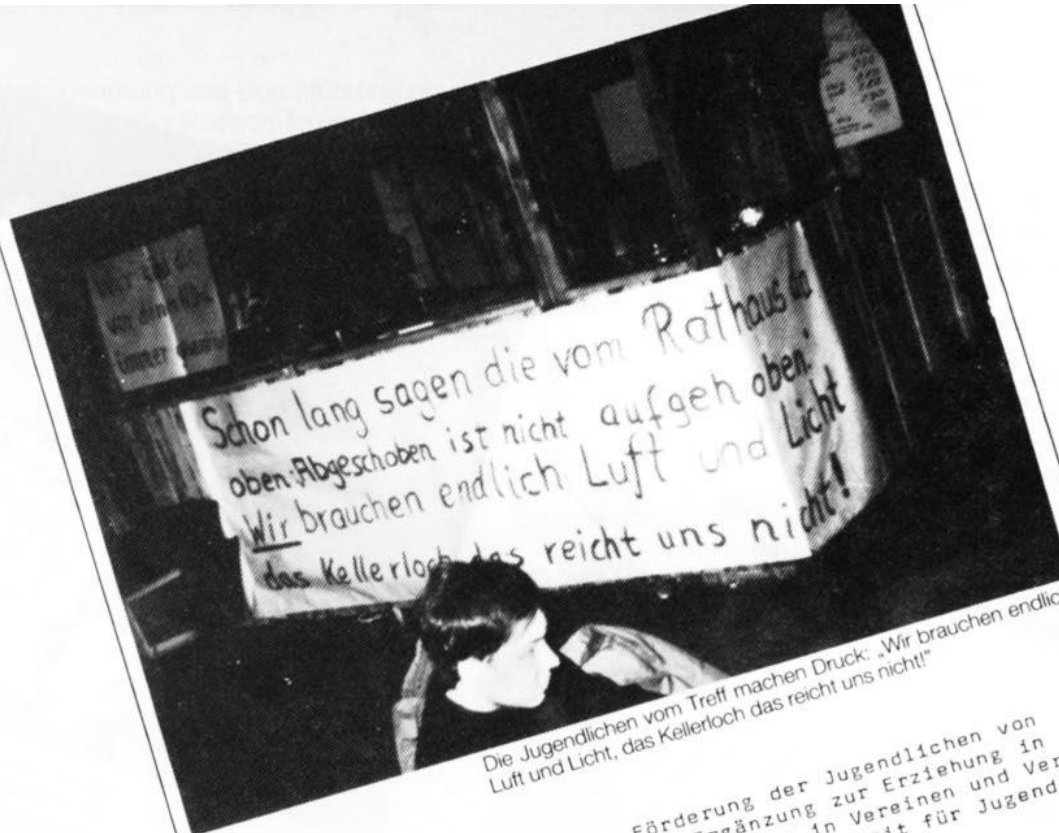 Schon lang sagen die vom Rathaus da
oben: Abgeschoben ist nicht aufgehoben.
Wir brauchen endlich Luft und Licht
das Kellerloch das reicht uns nicht!
Die Jugendlichen vom Treff machen Druck: „Wir brauchen endlic
Luft und Licht, das Kellerloch das reicht uns nicht!"
Förderung der Jugendlichen von
Ergänzung zur Erziehung in
in Vereinen und Ver
für Jugend